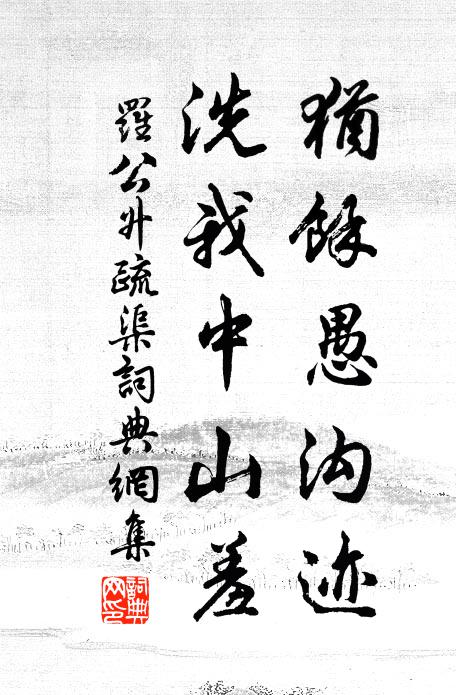 猶餘愚沟迹
洗我中山羞
羅公升疏渠詞典網集
詞典网印